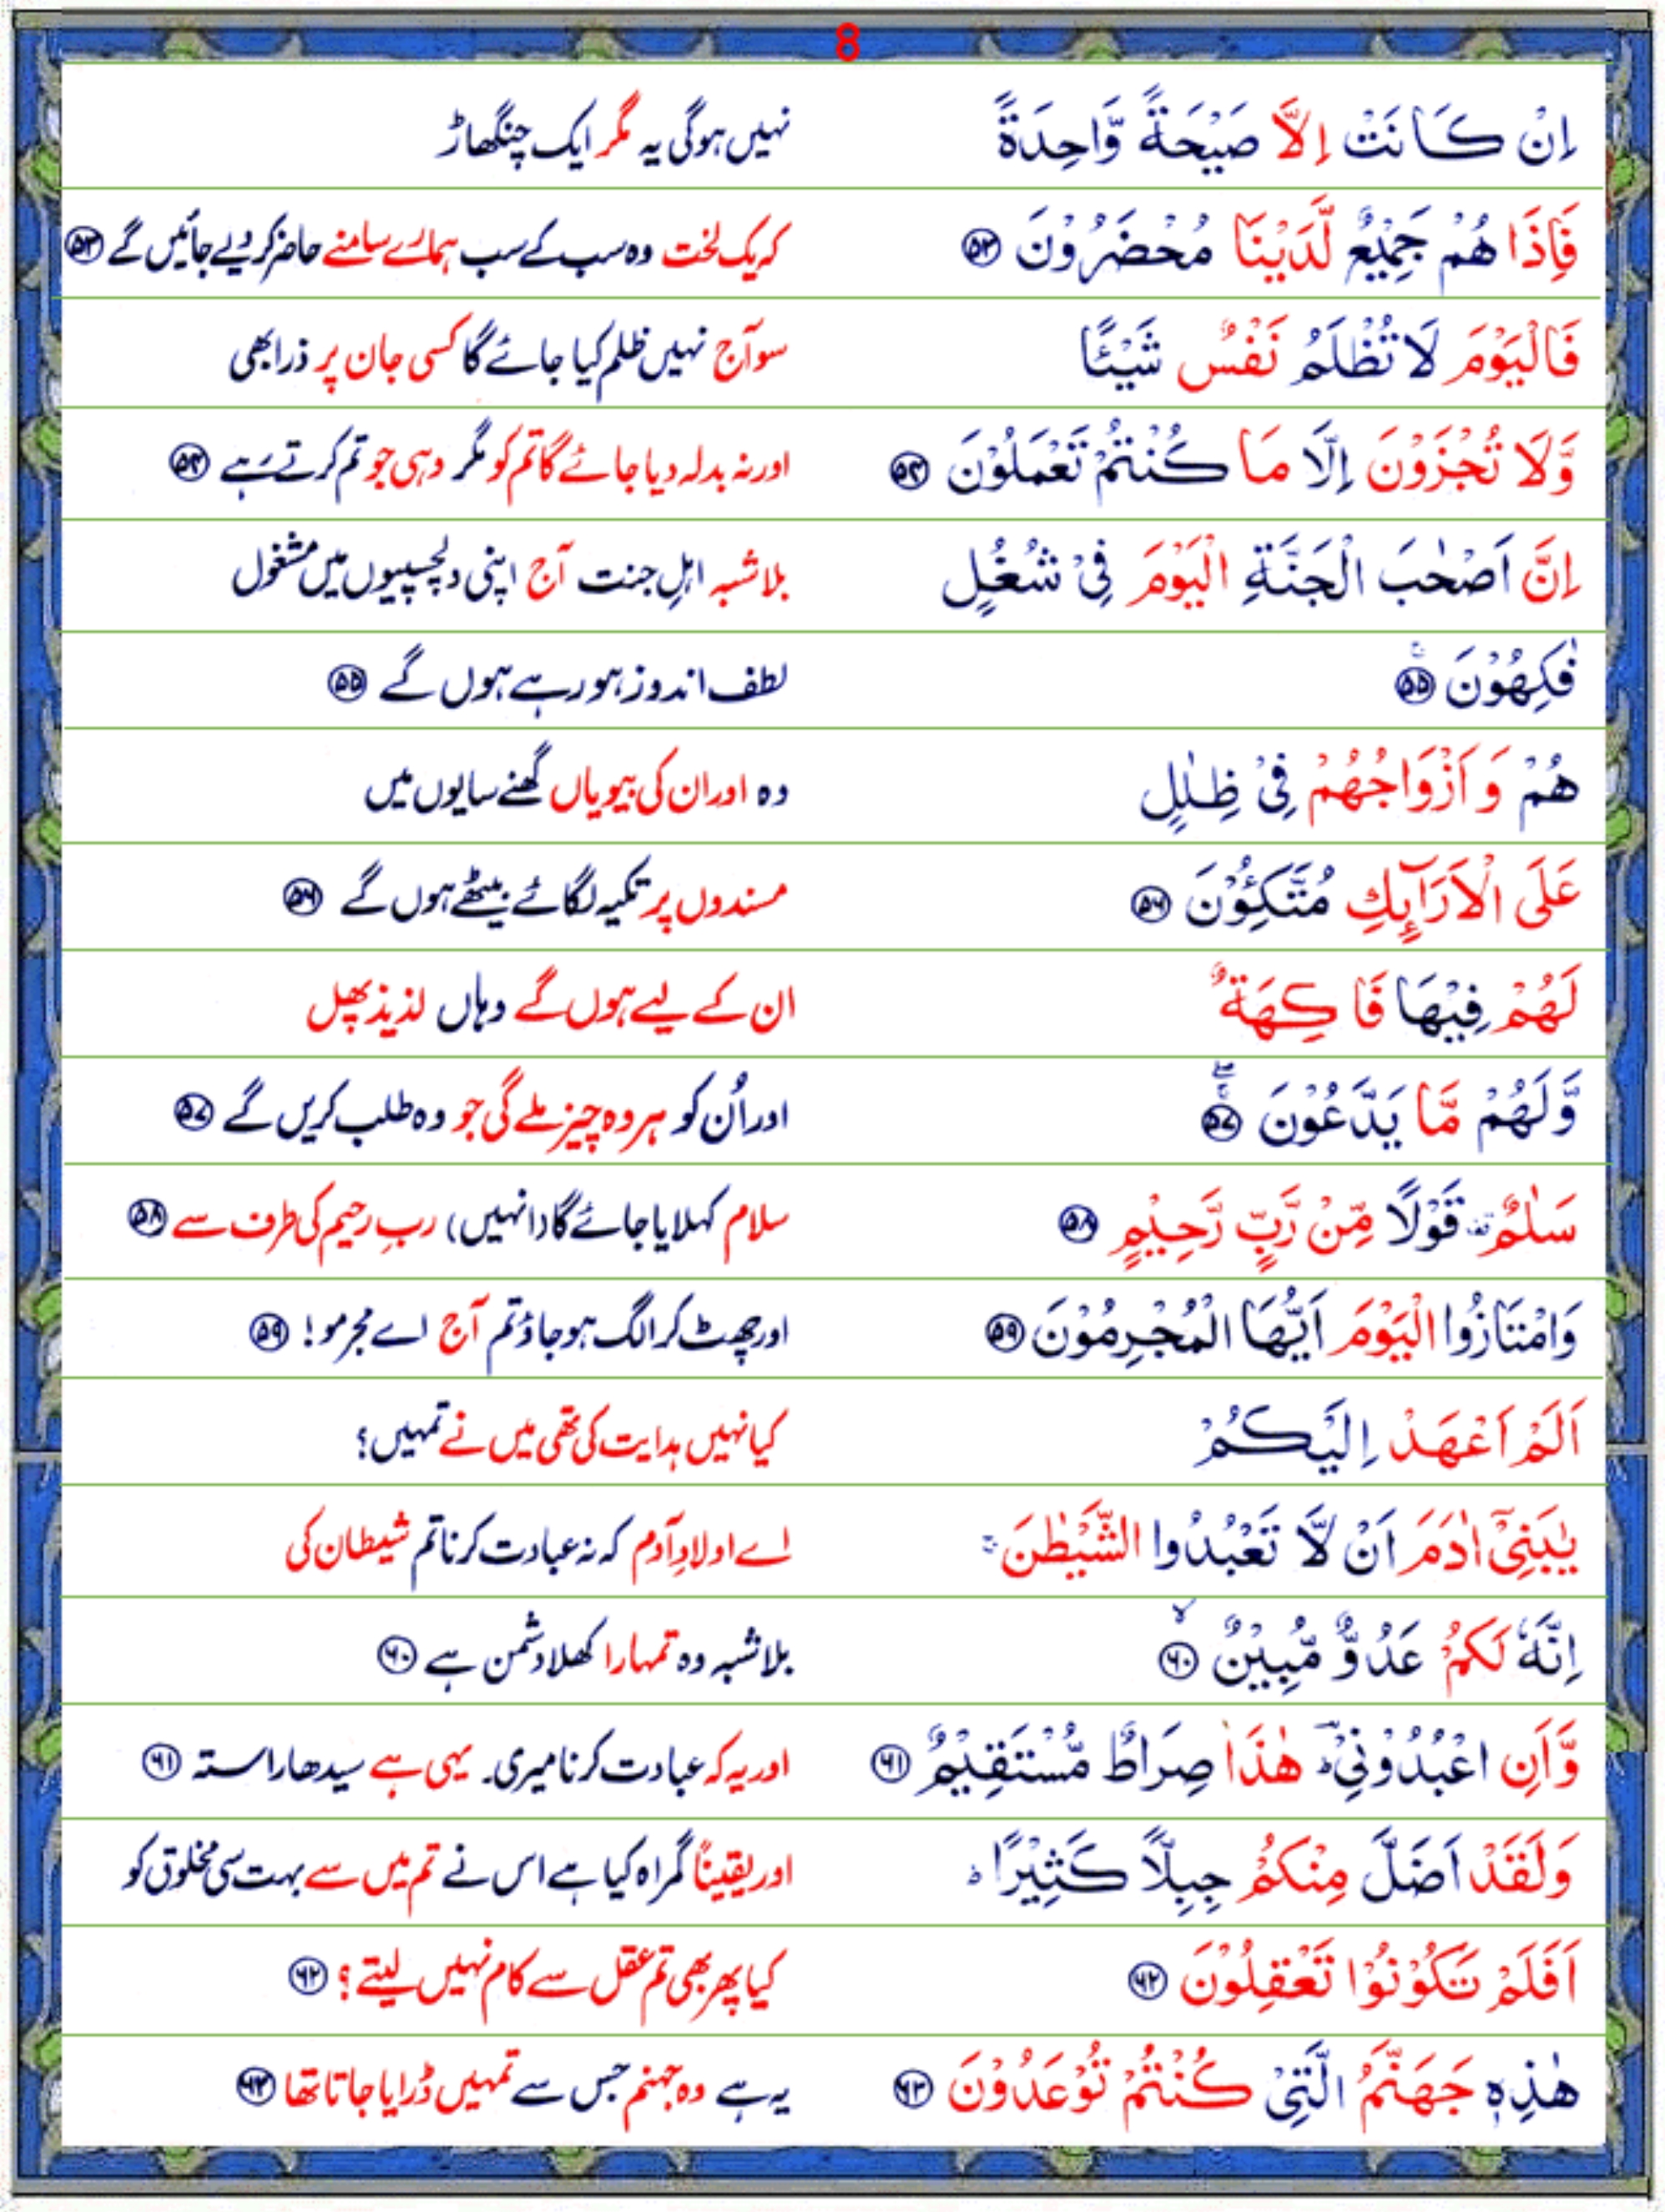 8
اِنْ كَانَتْ اِلَّا صَيْحَةً وَّاحِدَةً نہیں ہوگی یہ مگر ایک چنگھاڑ
فَاِذَا هُمْ جَمِيْعٌ لَّدَيْنَا مُحْضَرُوْنَ ۵۳ کہ یک لخت وہ سب کے سب ہمارے سامنے حاضر کر دیے جائیں گے ۵۳
فَالْيَوْمَ لَا تُظْلَمُ نَفْسٌ شَيْئًا سو آج نہیں ظلم کیا جائے گا کسی جان پر ذرا بھی
وَّلَا تُجْزَوْنَ اِلَّا مَا كُنْتُمْ تَعْمَلُوْنَ ۵۴ اور نہ بدلہ دیا جائے گا تم کو مگر وہی جو تم کرتے رہے ۵۴
اِنَّ اَصْحٰبَ الْجَنَّةِ الْيَوْمَ فِيْ شُغُلٍ بلاشبہ اہلِ جنت آج اپنی دلچسپیوں میں مشغول
فٰكِهُوْنَ ۵۵ لطف اندوز ہو رہے ہوں گے ۵۵
هُمْ وَاَزْوَاجُهُمْ فِيْ ظِلٰلٍ وہ اور ان کی بیویاں گھنے سایوں میں
عَلَى الْاَرَآئِكِ مُتَّكِئُوْنَ ۵۶ مسندوں پر تکیہ لگائے بیٹھے ہوں گے ۵۶
لَهُمْ فِيْهَا فَاكِهَةٌ ان کے لیے ہوں گے وہاں لذیذ پھل
وَّلَهُمْ مَّا يَدَّعُوْنَ ۵۷ اور اُن کو ہر وہ چیز ملے گی جو وہ طلب کریں گے ۵۷
سَلٰمٌ قَوْلًا مِّنْ رَّبٍّ رَّحِيْمٍ ۵۸ سلام کہلایا جائے گا (انہیں) ربِ رحیم کی طرف سے ۵۸
وَامْتَازُوا الْيَوْمَ اَيُّهَا الْمُجْرِمُوْنَ ۵۹ اور چھٹ کر الگ ہو جاؤ تم آج اے مجرمو! ۵۹
اَلَمْ اَعْهَدْ اِلَيْكُمْ کیا نہیں ہدایت کی تھی میں نے تمہیں؟
يٰبَنِيْٓ اٰدَمَ اَنْ لَّا تَعْبُدُوا الشَّيْطٰنَ اے اولادِ آدم کہ نہ عبادت کرنا تم شیطان کی
اِنَّهٗ لَكُمْ عَدُوٌّ مُّبِيْنٌ ۶۰ بلاشبہ وہ تمہارا کھلا دشمن ہے ۶۰
وَّاَنِ اعْبُدُوْنِيْ ؕ هٰذَا صِرَاطٌ مُّسْتَقِيْمٌ ۶۱ اور یہ کہ عبادت کرنا میری۔ یہی ہے سیدھا راستہ ۶۱
وَلَقَدْ اَضَلَّ مِنْكُمْ جِبِلًّا كَثِيْرًا ؕ اور یقیناً گمراہ کیا ہے اس نے تم میں سے بہت سی مخلوق کو
اَفَلَمْ تَكُوْنُوْا تَعْقِلُوْنَ ۶۲ کیا پھر بھی تم عقل سے کام نہیں لیتے؟ ۶۲
هٰذِهٖ جَهَنَّمُ الَّتِيْ كُنْتُمْ تُوْعَدُوْنَ ۶۳ یہ ہے وہ جہنم جس سے تمہیں ڈرایا جاتا تھا ۶۳